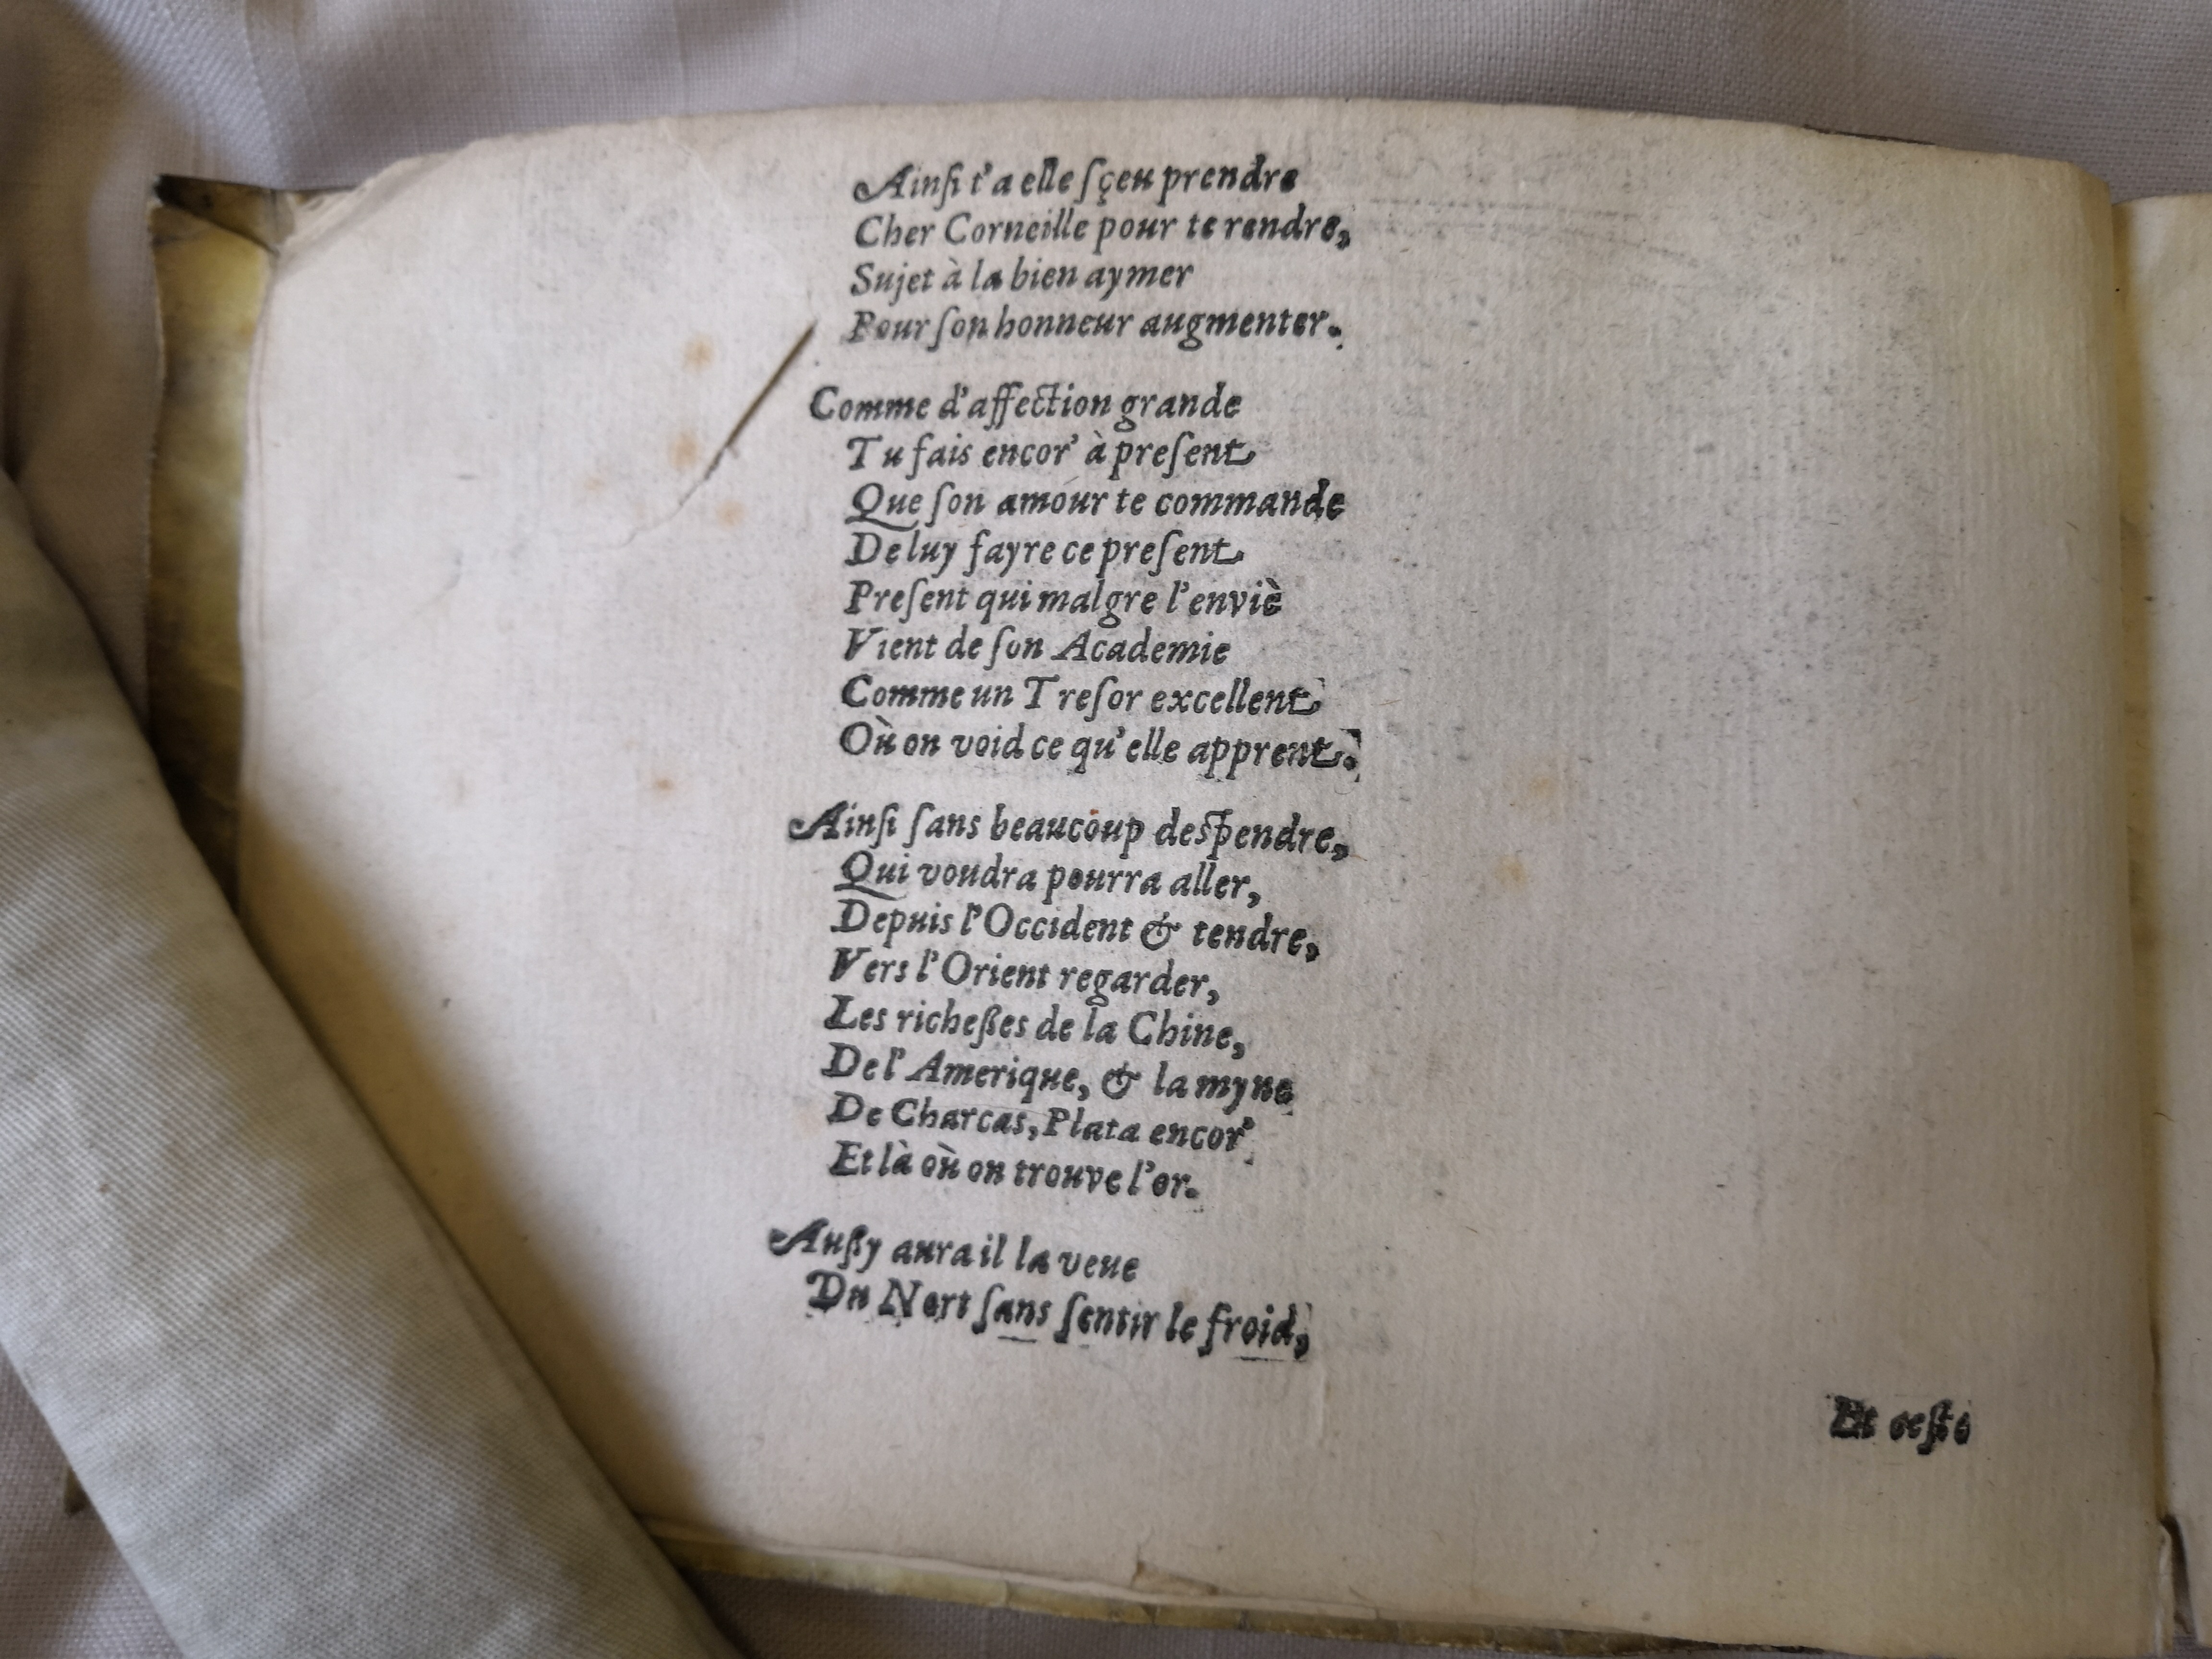 Ainſi t'a elle ſçeu prendre
Cher Corneille pour te rendre,
Sujet à la bien aymer
Pour ſon honneur augmenter.
Comme d'affection grande
Tu fais encor' à preſent
Que ſon amour te commande
De luy fayre ce preſent
Preſent qui malgre l'enviè
Vient de ſon Academie
Comme un Treſor excellent
Où on void ce qu'elle apprent.
Ainſi ſans beaucoup deſpendre,
Qui voudra pourra aller,
Depuis l'Occident & tendre,
Vers l'Orient regarder,
Les richeßes de la Chine,
De l'Amerique, & la myne
De Charcas, Plata encor'
Et là où on trouve l'or.
Außy aura il la veue
Du Nort ſans ſentir le froid,
Et ceſte